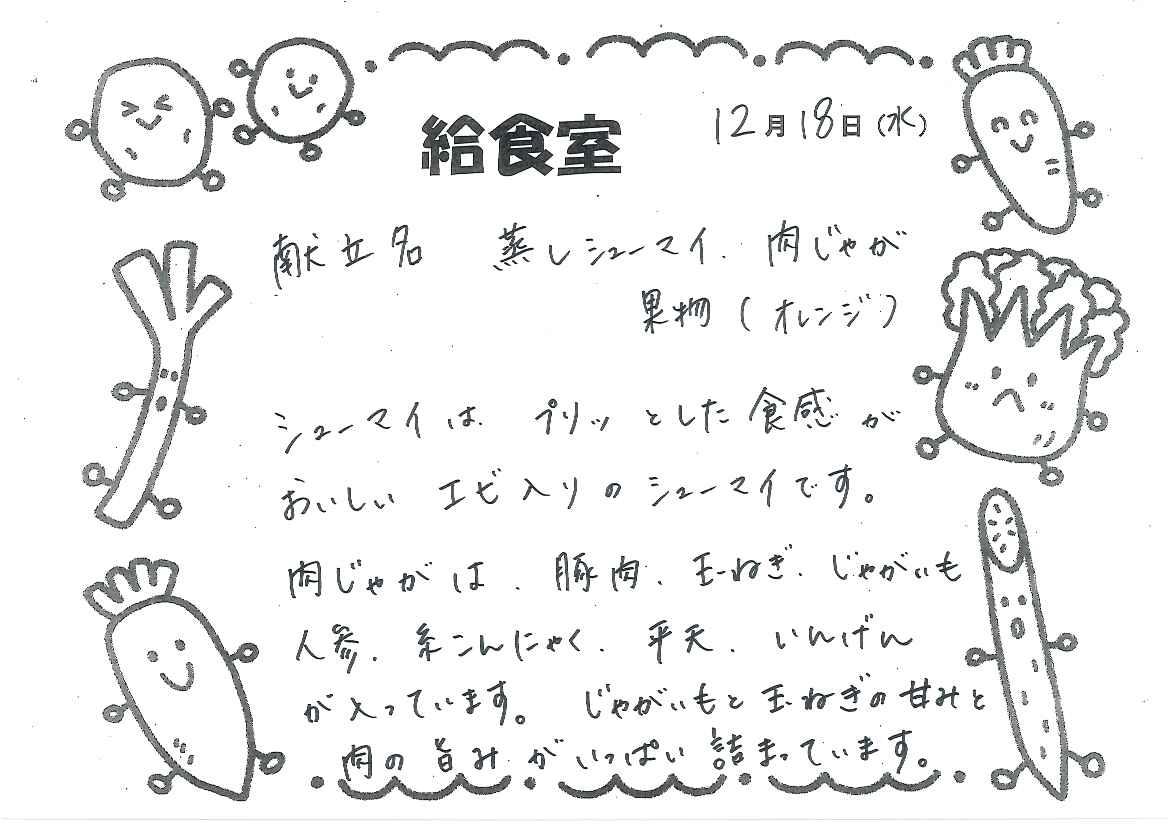 給食室
12月18日(水)
献立名 蒸しシューマイ、肉じゃが
果物(オレンジ)
シューマイは、プリッとした食感が
おいしい エビ入りのシューマイです。
肉じゃがは、豚肉、玉ねぎ、じゃがいも
人参、糸こんにゃく、平天、いんげん
が入っています。 じゃがいもと玉ねぎの甘みと
肉の旨みがいっぱい詰まっています。